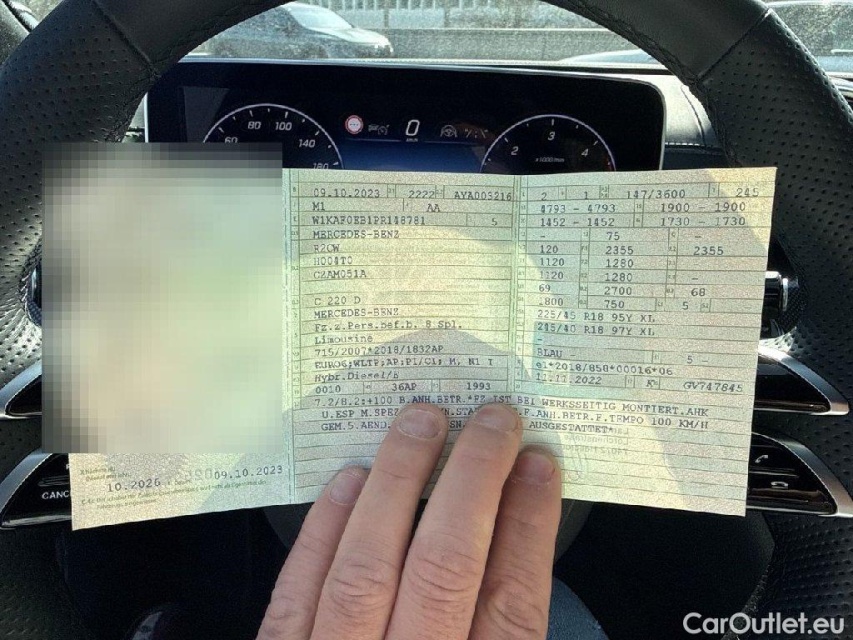 60 80 100 140 180
0
2 3 4
x1000/min
09.10.2023 2222 AYA005216 2 1 147/3600 245
M1 AA 4793 - 4793 1900 - 1900
W1KAF0EB1PR148781 5 1452 - 1452 1730 - 1730
MERCEDES-BENZ - 75
R2CW 120 2355 2355
H004T0 1120 1280 -
C2AM051A 1120 1280 -
69 2700 68
C 220 D 1800 750 5 -
MERCEDES-BENZ 225/45 R18 95Y XL
Fz.z.Pers.bef.b. 8 Spl. 245/40 R18 97Y XL
Limousine -
715/2007*2018/1832AP BLAU - 5 -
EURO6;WLTP;AP;PI/CI; M, N1 I e1*2018/858*00016*06
Hybr.Diesel/E 11.11.2022 K GV747845
0010 36AP 1993
7.2/8.2:+100 B.ANH.BETR.*FZ IST BEI WERKSSEITIG MONTIERT.AHK
U.ESP M.SPEZ F.ANH.BETR.F.TEMPO 100 KM/H
GEM.5.AEND. AUSGESTATTET*
10.2026 09.10.2023
CANC
CarOutlet.eu